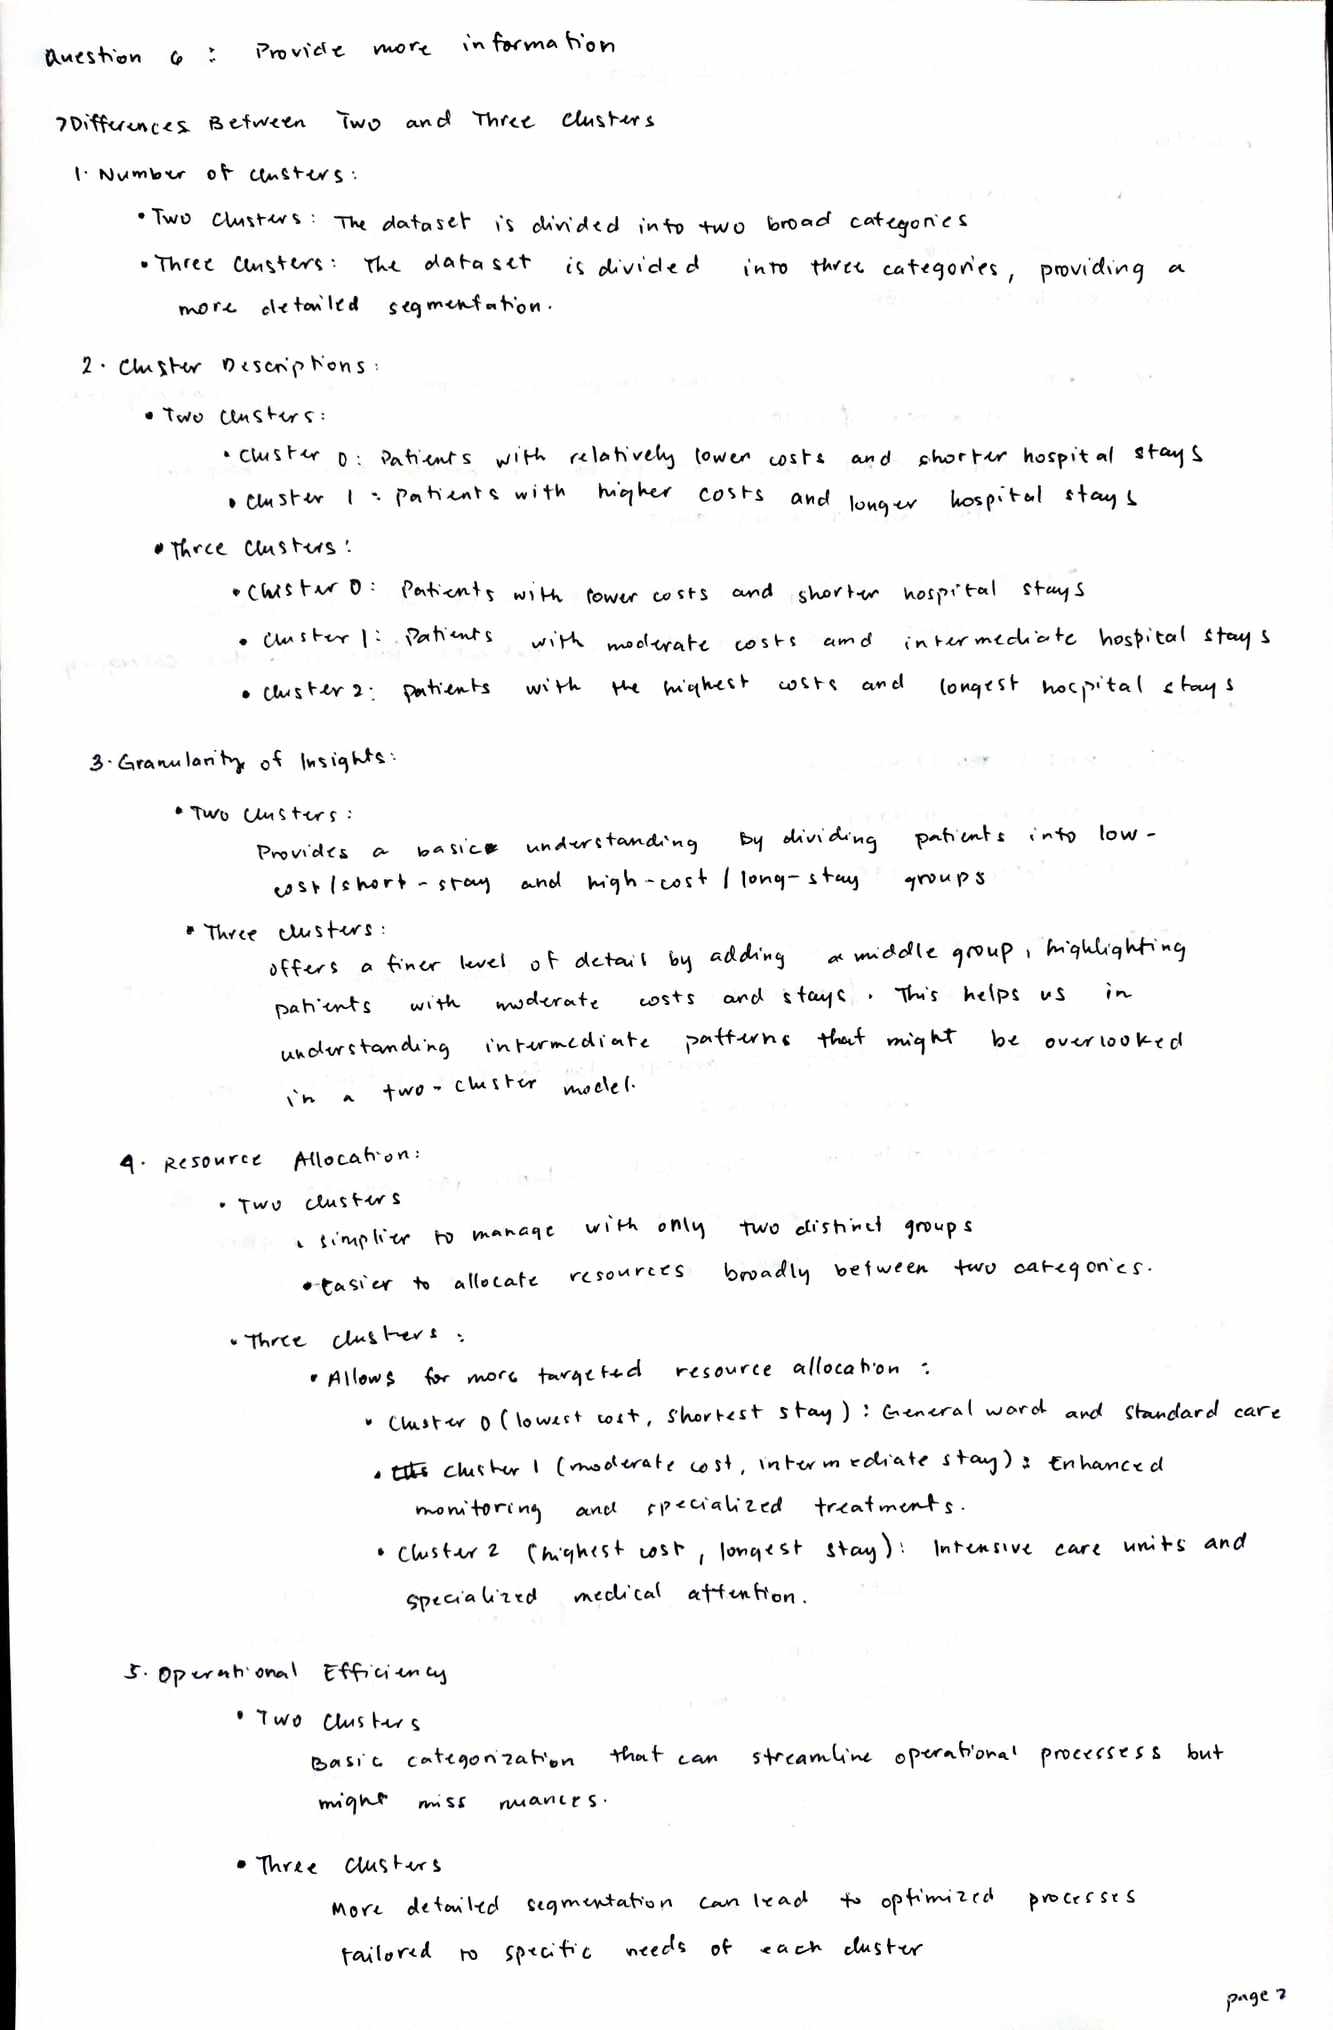 Question 6 : Provide more information
>Differences Between Two and Three clusters
1. Number of clusters:
• Two clusters: The dataset is divided into two broad categories
• Three clusters: The dataset is divided into three categories, providing a
more detailed segmentation.
2. Cluster Descriptions:
• Two clusters:
• Cluster 0: Patients with relatively lower costs and shorter hospital stays
• Cluster 1: Patients with higher costs and longer hospital stays
• Three clusters:
• Cluster 0: Patients with lower costs and shorter hospital stays
• Cluster 1: Patients with moderate costs amd intermediate hospital stays
• Cluster 2: Patients with the highest costs and longest hospital stays
3. Granularity of Insights:
• Two clusters:
Provides a basic understanding by dividing patients into low-
cost/short-stay and high-cost/long-stay groups
• Three clusters:
offers a finer level of detail by adding a middle group, highlighting
patients with moderate costs and stays. This helps us in
understanding intermediate patterns that might be overlooked
in a two-cluster model.
4. Resource Allocation:
• Two clusters
• simplier to manage with only two distinct groups
• Easier to allocate resources broadly between two categories.
• Three clusters:
• Allows for more targeted resource allocation:
• Cluster 0 (lowest cost, shortest stay): General ward and standard care
• Cluster 1 (moderate cost, intermediate stay): Enhanced
monitoring and specialized treatments.
• Cluster 2 (highest cost, longest stay): Intensive care units and
specialized medical attention.
5. Operational Efficiency
• Two clusters
Basic categorization that can streamline operational processess but
might miss nuances.
• Three clusters
More detailed segmentation can lead to optimized processes
tailored to specific needs of each cluster
page 2